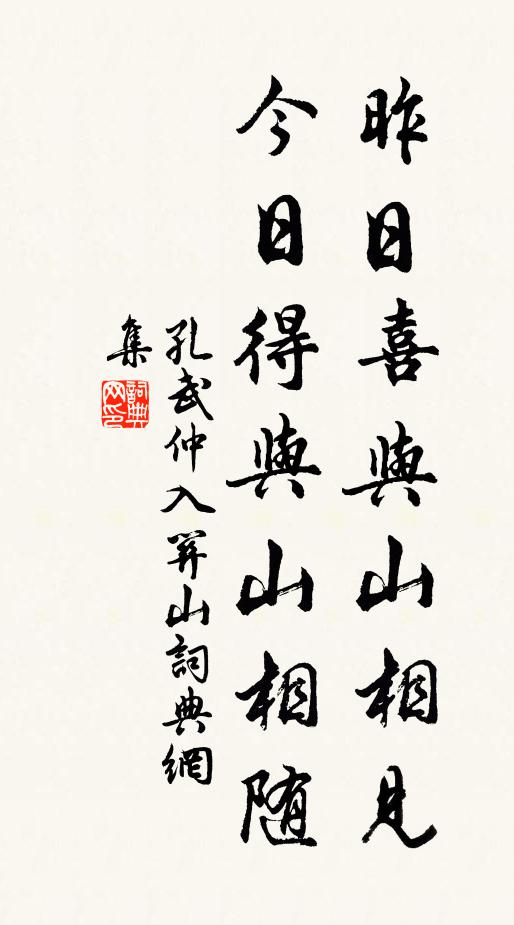 昨日喜與山相見
今日得與山相随
孔武仲入山詞典網
集
詞典网印